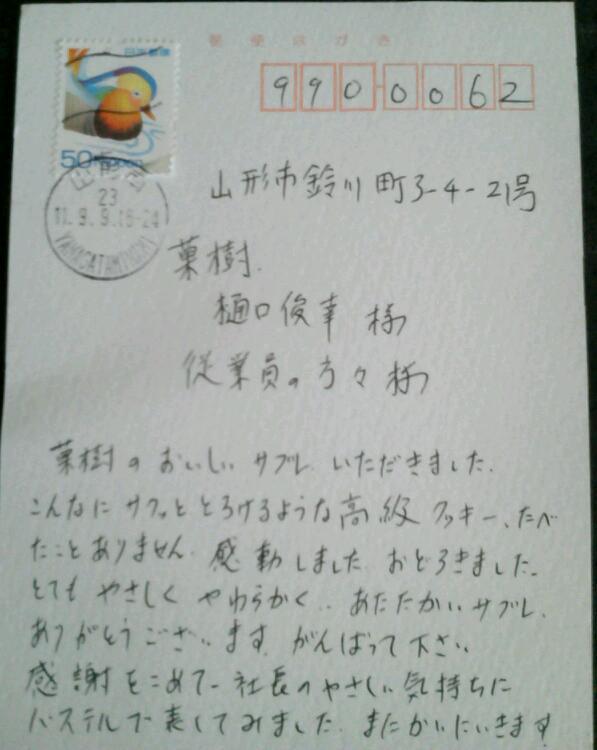 郵便はがき
日本郵便
50
990-0062
23
11.9.9.18-24
YAMAGATANISHI
山形市鈴川町3-4-21号
菓樹.
樋口俊幸 様
従業員の方々様
菓樹のおいしいサブレ、いただきました.
こんなにサクッととろけるような高級クッキー、たべ
たことありません. 感動しました. おどろきました.
とても やさしく やわらかく、あたたかいサブレ.
ありがとうございます. がんばって下さい
感謝をこめて 社長のやさしい気持ちに
パステルで表してみました. またかいにいきます